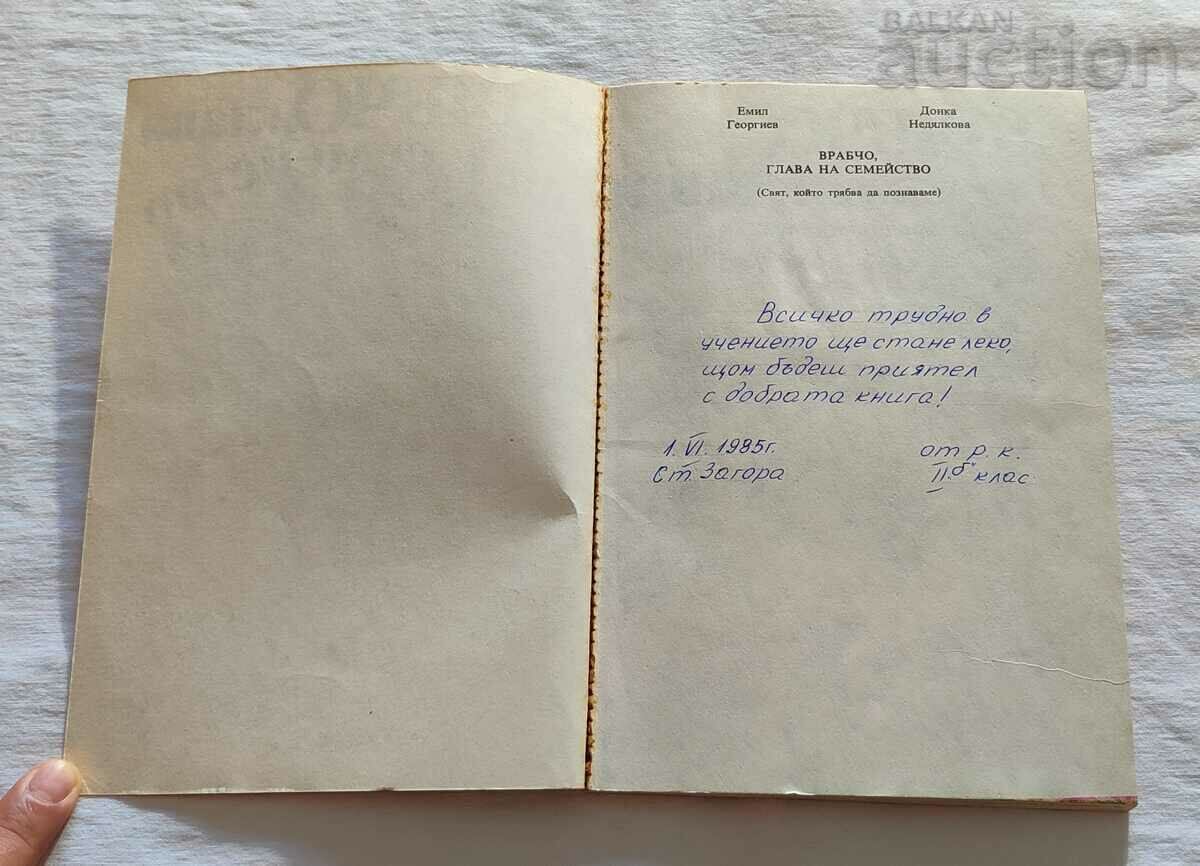 BALKAN
auction
Емил Донка
Георгиев Недялкова
ВРАБЧО,
ГЛАВА НА СЕМЕЙСТВО
(Свят, който трябва да познаваме)
Всичко трудно в
учението ще стане леко,
щом бъдеш приятел
с добрата книга!
1. VI. 1985г. от р. к.
Ст. Загора II.б" клас.